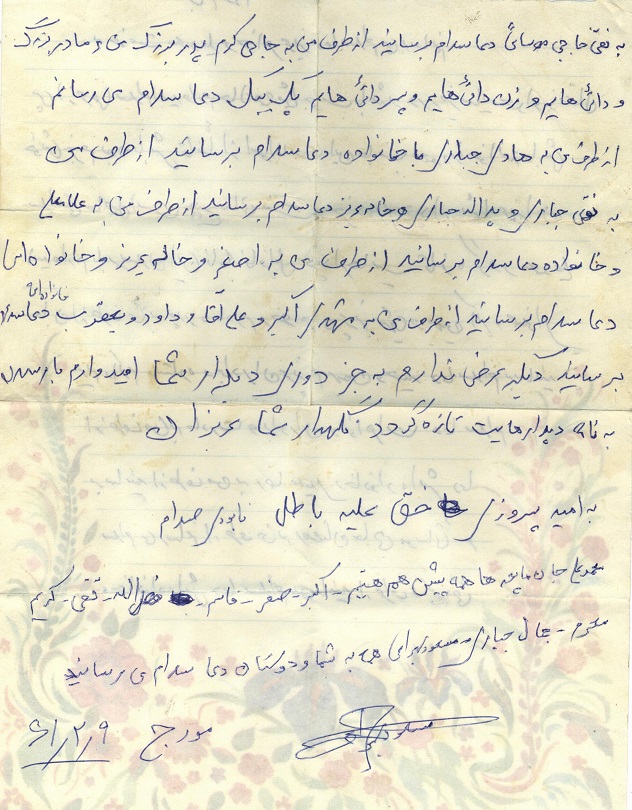 به نقی حاجی موسائی دعا سلام برسانید از طرف من به حاجی کرم پدر بزرگ من و مادر بزرگ
و دائی هایم و زن دائی هایم و پسر دائی هایم یک بیک دعا سلام می رسانم
از طرف من به هادی جباری با خانواده دعا سلام برسانید از طرف من
به نقی جباری و یداله جباری و خاله عزیز دعا سلام برسانید از طرف من به غلامعلی
و خانواده دعا سلام برسانید از طرف من به اصغر و خاله عزیز و خانواده اش
خانواده اش
دعا سلام برسانید از طرف من به مهدی اکبر و علی آقا و داود و یعقوب دعا سلام
برسانید دیگر عرضی ندارم به جز دوری دیدار شما امیدوارم با رسیدن
به نامه دیدارهایت تازه گردد نگهدار شما عزیزان
به امید پیروزی حق علیه باطل نابودی صدام
محمدعلی جان ما بچه ها همه پیش هم هستیم - اکبر - صفر - قاسم - الله - تقی - کریم
محرم - جمال جباری - مسعود همه به شما و دوستان دعا سلام می رسانند
مورخ ۶۱/۲/۹ مسعود